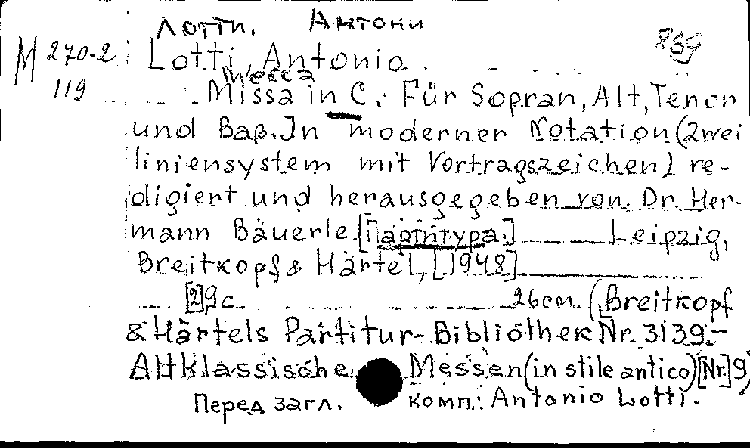 Лотти, Антони
M 270-2
119
Lotti, Antonio 869
Месса
Missa in C. Für Sopran, Alt, Tenor
und Baß. In moderner Notation (zwei
liniensystem mit Vortragszeichen) re-
digiert und herausgegeben von Dr. Her-
mann Bäuerle [Партитура.] Leipzig,
Breitkopf & Härtel, [1948]
[2] 9 c. 26 cm. (Breitkopf
& Härtels Partitur-Bibliothek Nr. 3139.-
Altklassische Messen (in stile antico) [Nr.] 9)
Перед загл. комп.: Antonio Lotti.